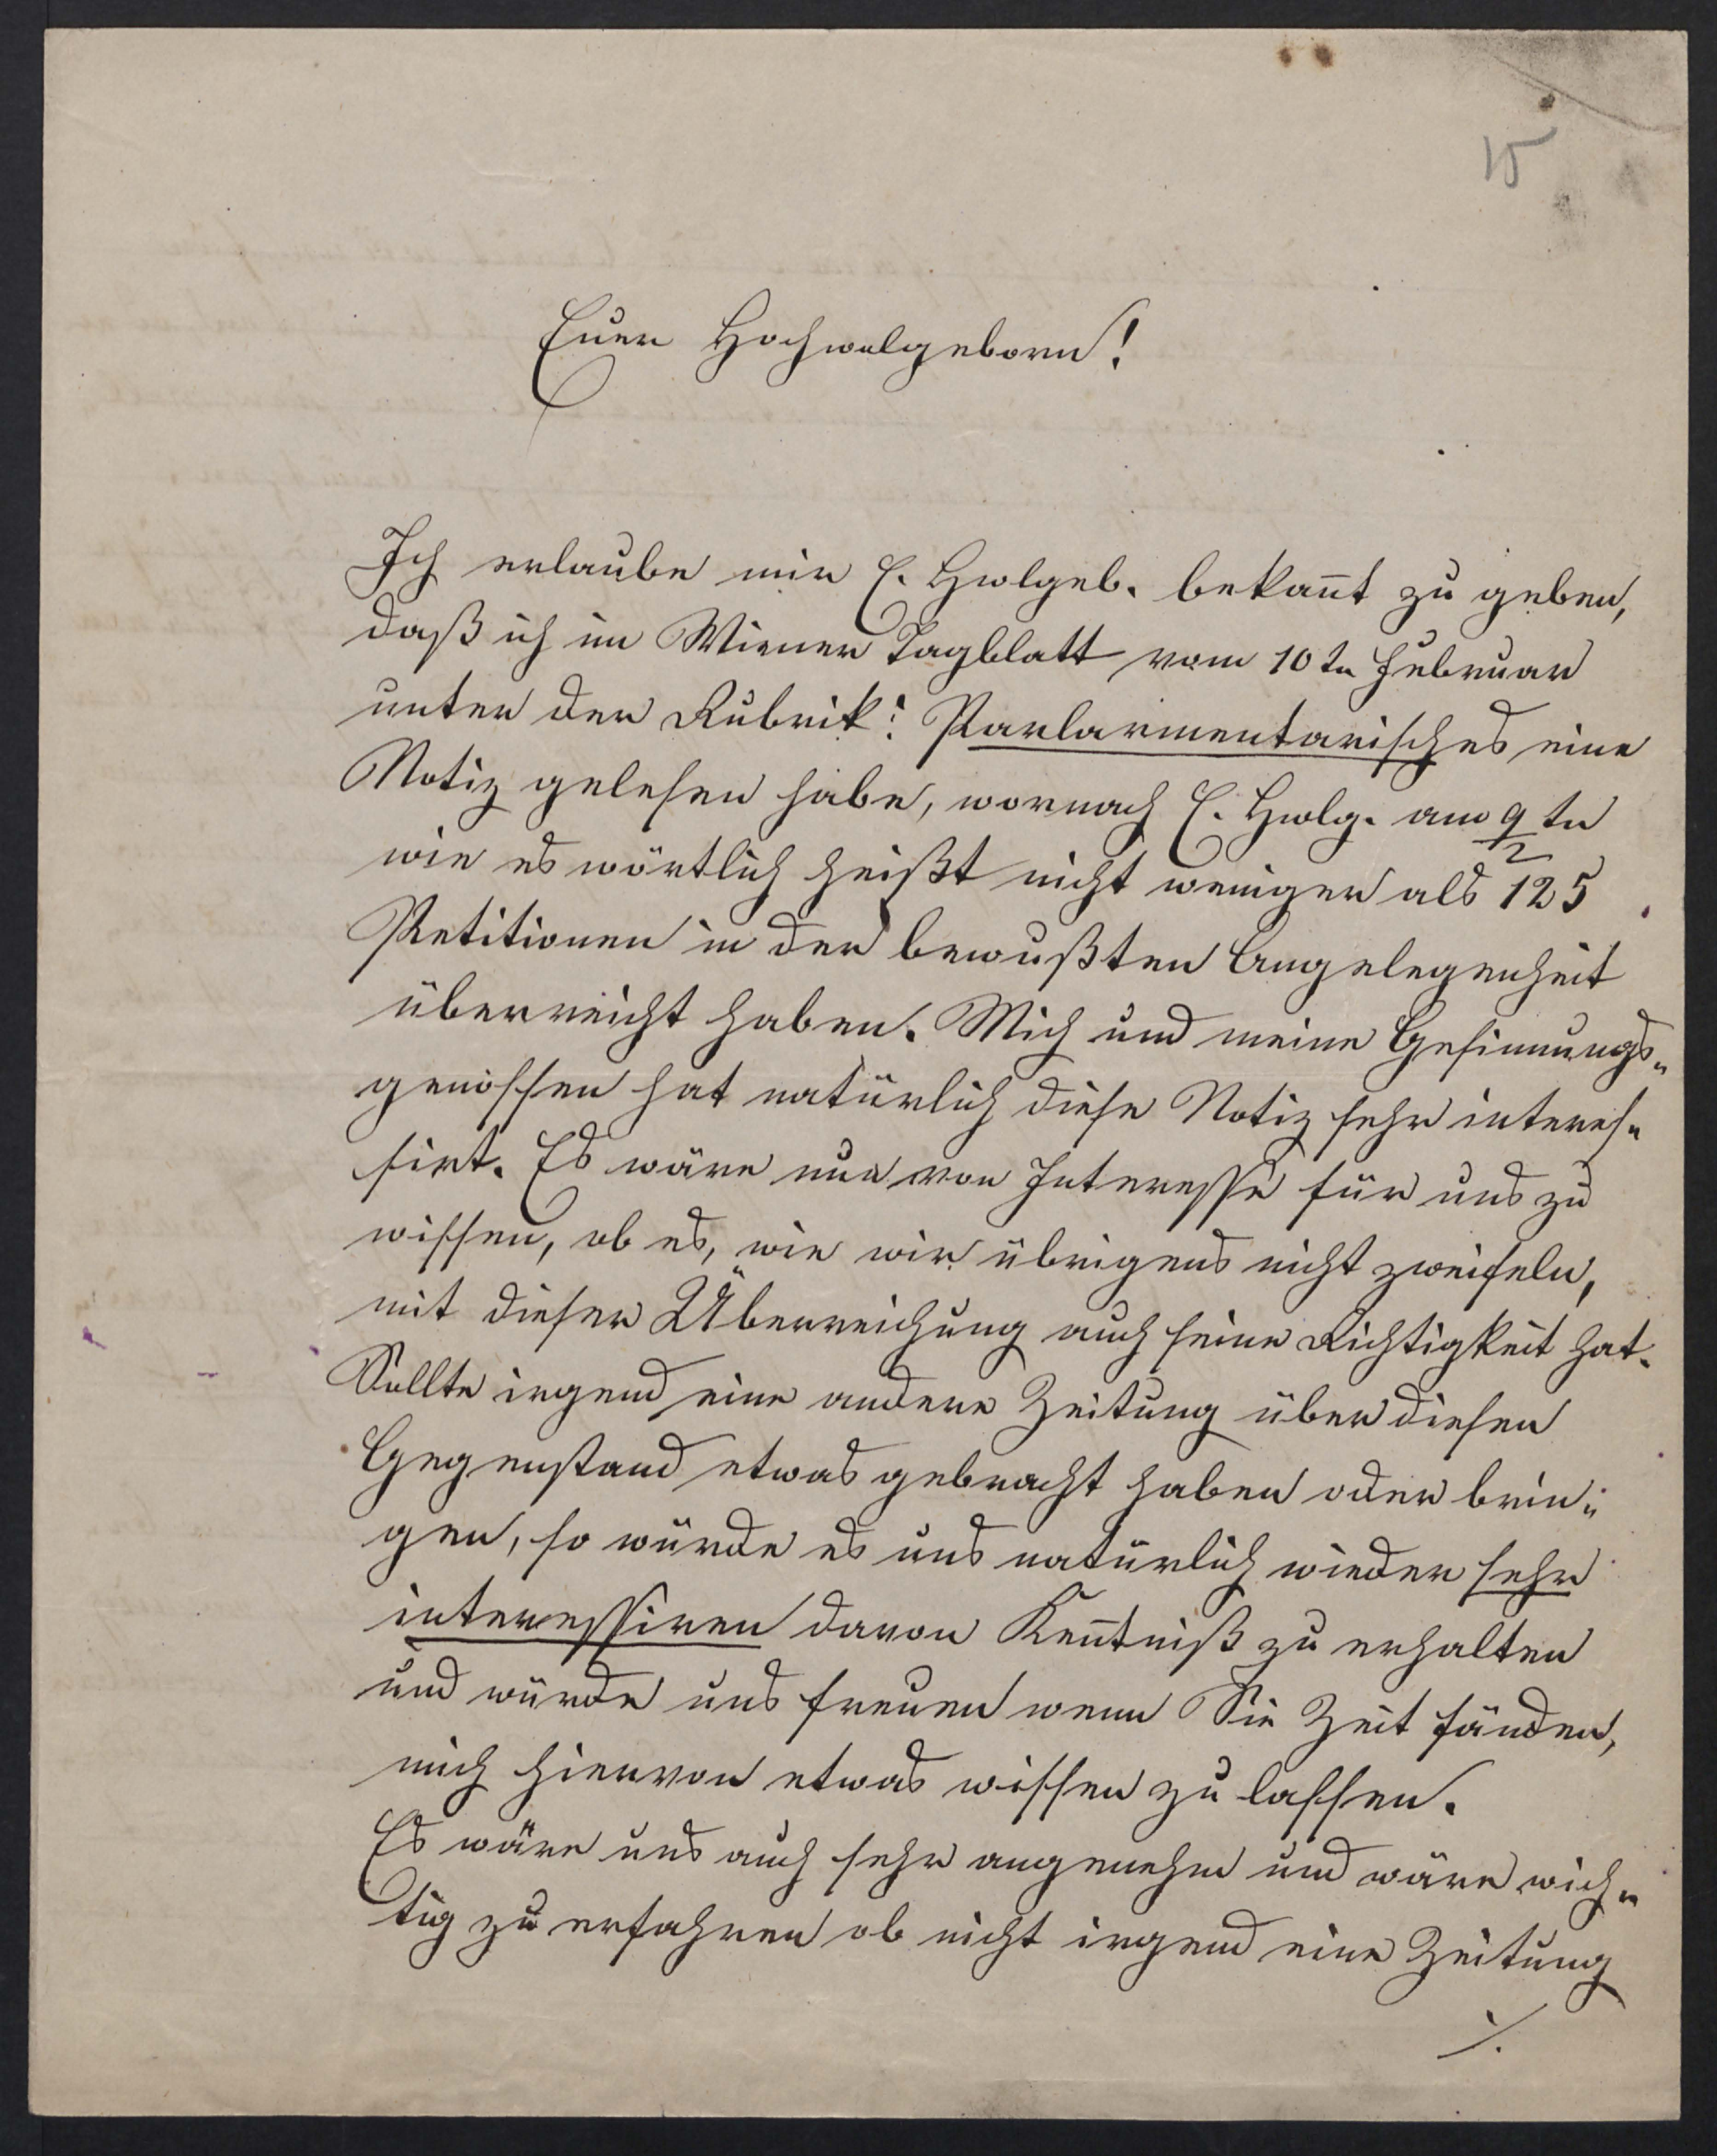 15
Euer Hochwolgeborn!
Ich erlaube mir E. Hwolgeb. bekañt zu geben,
daß ich im Wiener Tagblatt vom 10tn Februar
unter der Rubrik: Parlarmentarisches eine
Notiz gelesen habe, wornach E. Hwlg. am 9/2 tn
wie es wörtlich heißt nicht weniger als 125
Petitionen in der bewußten Angelegenheit
überreicht haben. Mich und meine Gesinnungs-
genossen hat natürlich diese Notiz sehr interes-
sirt. Es wäre nun von Interesse für uns zu
wissen, ob es, wie wir übrigens nicht zweifeln,
mit dieser Überreichung auch seine Richtigkeit hat.
Sollte irgend eine andere Zeitung über diesen
Gegenstand etwas gebracht haben oder brin-
gen, so würde es uns natürlich wieder sehr
interessiren davon Keñtniß zu erhalten
und würde uns freuen wenn Sie Zeit fänden,
mich hiervon etwas wissen zu lassen.
Es wäre uns auch sehr angenehm und wäre wich-
tig zu erfahren ob nicht irgend eine Zeitung
./.